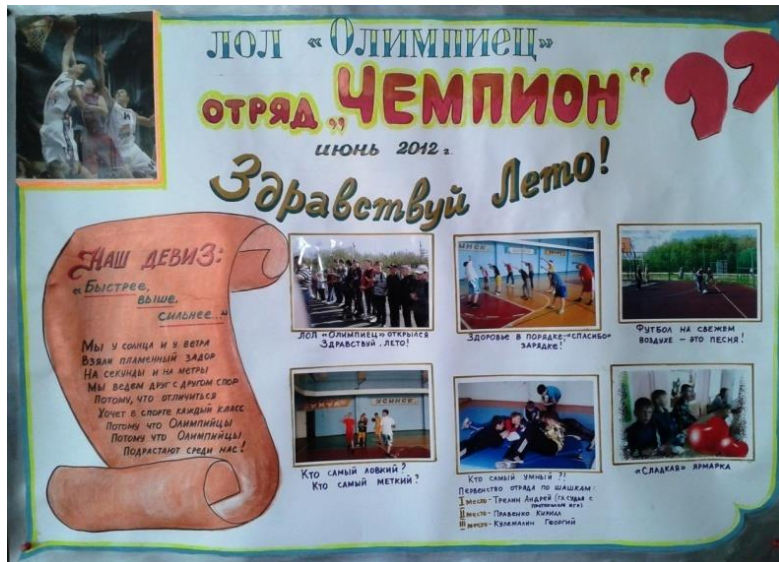 ЛОЛ «Олимпиец»
ОТРЯД „ЧЕМПИОН“
июнь 2012 г.
Здравствуй Лето!
НАШ ДЕВИЗ:
«Быстрее,
выше,
сильнее..."
Мы у солнца и у ветра
Взяли пламенный задор
На секунды и на метры
Мы ведем друг с другом спор
Потому, что отличиться
Хочет в спорте каждый класс
Потому что Олимпийцы
Потому что Олимпийцы
Подрастают среди нас!
ЛОЛ «Олимпиец» открылся
Здравствуй, лето!
Здоровье в порядке,-«спасибо»
зарядке!
Футбол на свежем
воздухе – это песня!
Кто самый ловкий?
Кто самый меткий?
Кто самый умный ?!
Первенство отряда по шашкам:
I место- Трелин Андрей (гл. судья с
II место- Правенко Кирилл
III место- Кулемалин Георгий
«Сладкая» ярмарка